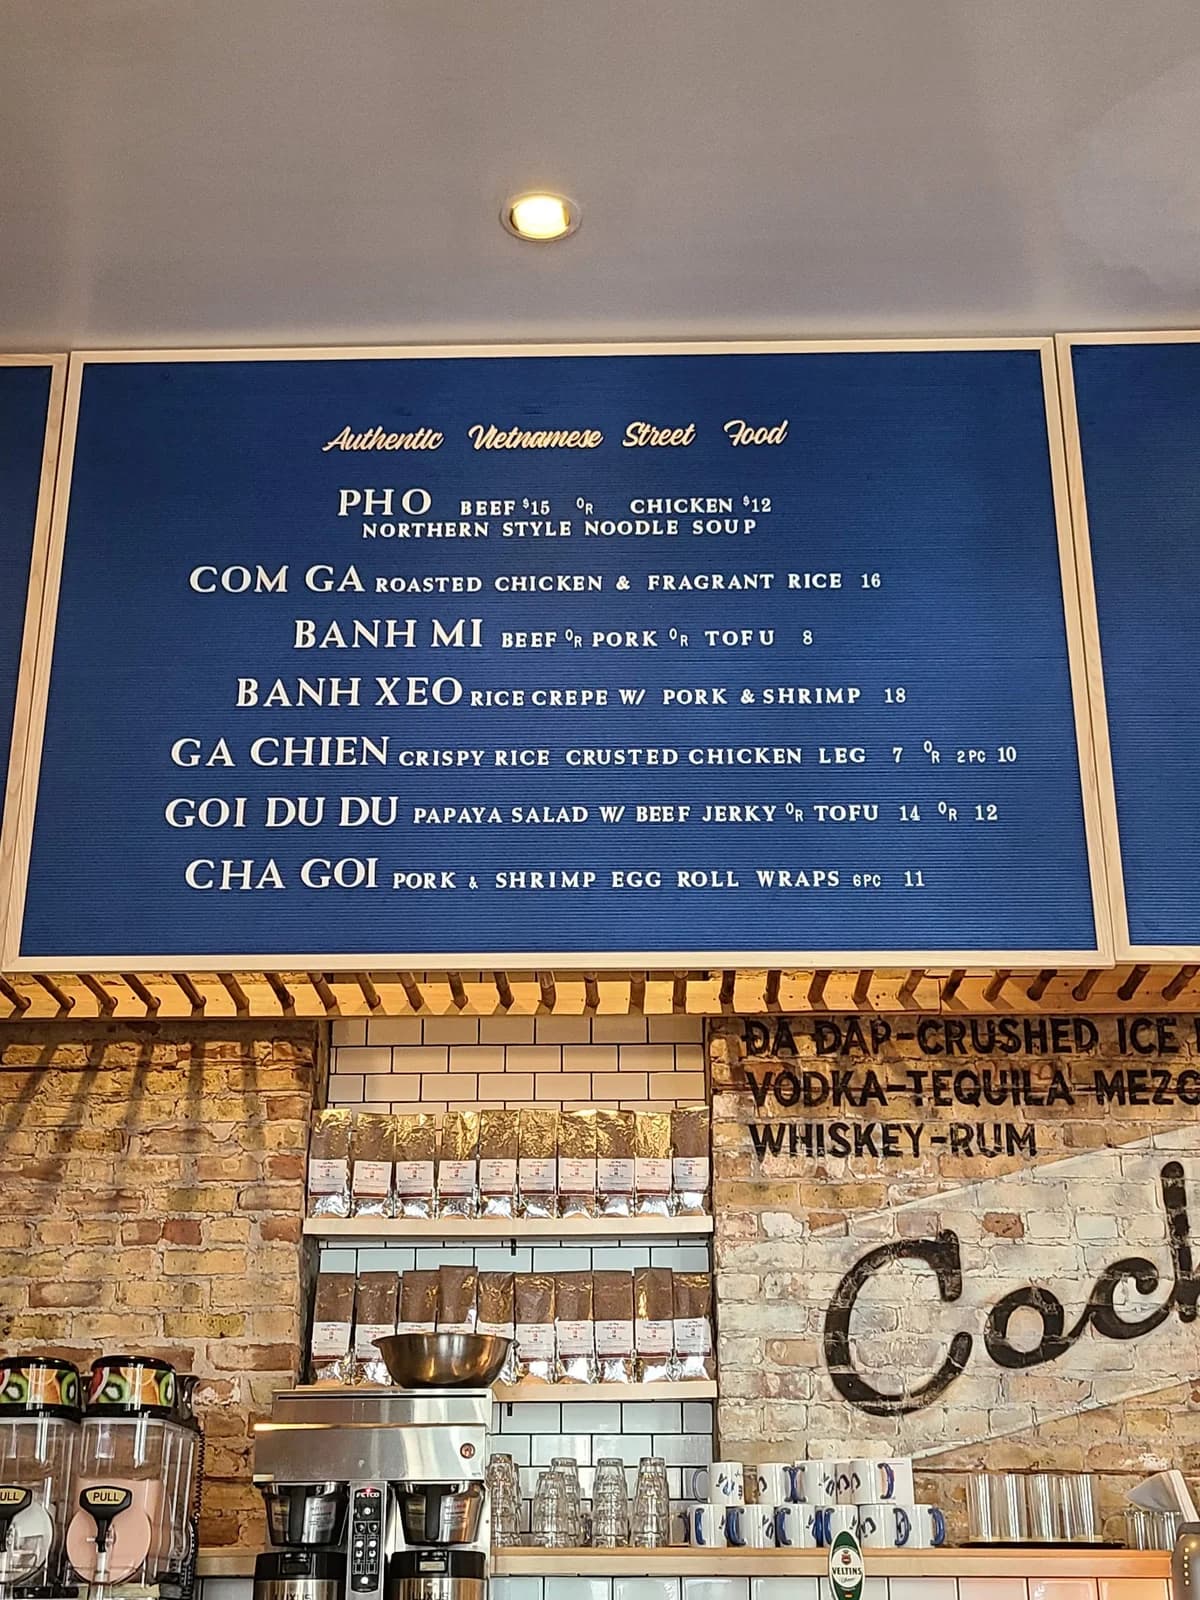 Authentic Vietnamese Street Food
PHO BEEF $15 OR CHICKEN $12
NORTHERN STYLE NOODLE SOUP
COM GA ROASTED CHICKEN & FRAGRANT RICE 16
BANH MI BEEF OR PORK OR TOFU 8
BANH XEO RICE CREPE W/ PORK & SHRIMP 18
GA CHIEN CRISPY RICE CRUSTED CHICKEN LEG 7 OR 2PC 10
GOI DU DU PAPAYA SALAD W/ BEEF JERKY OR TOFU 14 OR 12
CHA GOI PORK & SHRIMP EGG ROLL WRAPS 6PC 11
ĐÁ ĐẬP-CRUSHED ICE
VODKA-TEQUILA-MEZC
WHISKEY-RUM
Coc
PULL
FETCO
LUXUS
VELTINS